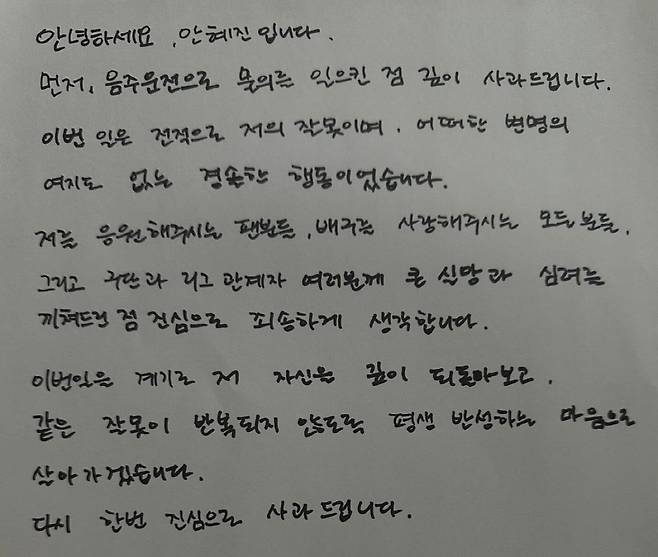 안녕하세요, 안혜진입니다.
먼저, 음주운전으로 물의를 일으킨 점 깊이 사과드립니다.
이번 일은 전적으로 저의 잘못이며, 어떠한 변명의
여지도 없는 경솔한 행동이었습니다.
저를 응원해주시는 팬분들, 배구를 사랑해주시는 모든 분들,
그리고 구단과 리그 관계자 여러분께 큰 실망과 심려를
끼쳐드린 점 진심으로 죄송하게 생각합니다.
이번일을 계기로 저 자신을 깊이 되돌아보고,
같은 잘못이 반복되지 않도록 평생 반성하는 마음으로
살아가겠습니다.
다시 한번 진심으로 사과드립니다.